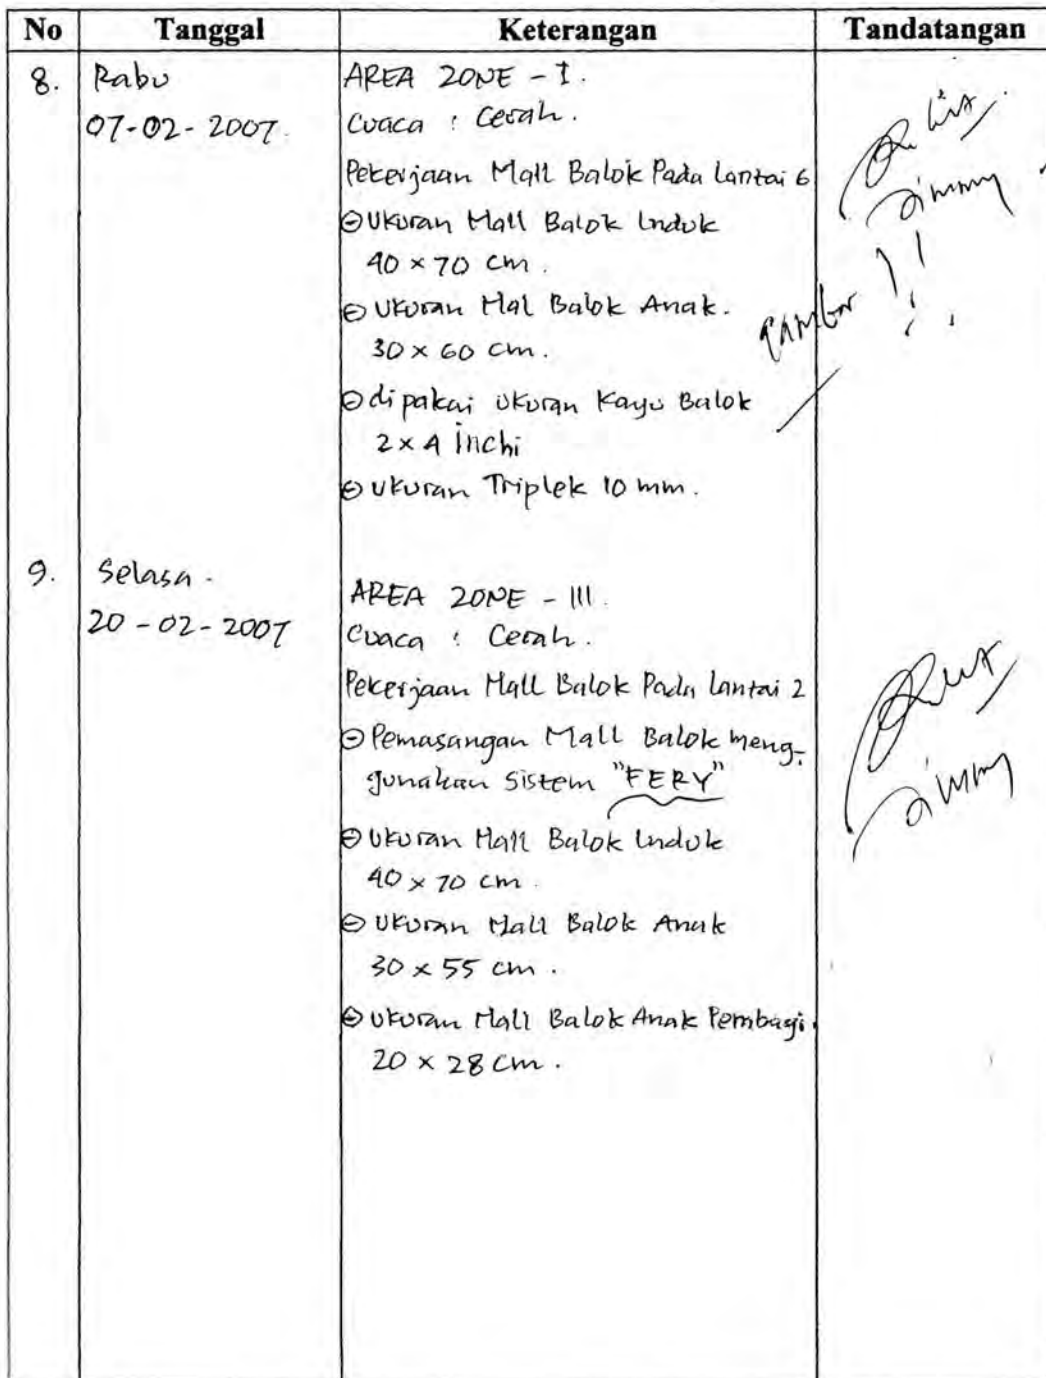 No Tanggal Keterangan Tandatangan
8. Rabu AREA ZONE - I.
07-02-2007. Cuaca : Cerah.
Pekerjaan Mall Balok Pada Lantai 6
⊖ Ukuran Mall Balok Induk
40 x 70 cm.
⊖ Ukuran Mal Balok Anak.
30 x 60 cm.
⊖ dipakai ukuran Kayu Balok
2 x 4 inchi
⊖ ukuran Triplek 10 mm.
Jimmy
gambar !!
9. Selasa. AREA ZONE - III.
20-02-2007 Cuaca : Cerah.
Pekerjaan Mall Balok Pada Lantai 2
⊖ Pemasangan Mall Balok meng-
gunakan Sistem "FERY"
⊖ Ukuran Mall Balok Induk
40 x 70 cm.
⊖ Ukuran Mall Balok Anak
30 x 55 cm.
⊖ Ukuran Mall Balok Anak Pembagi.
20 x 28 cm.
Jimmy